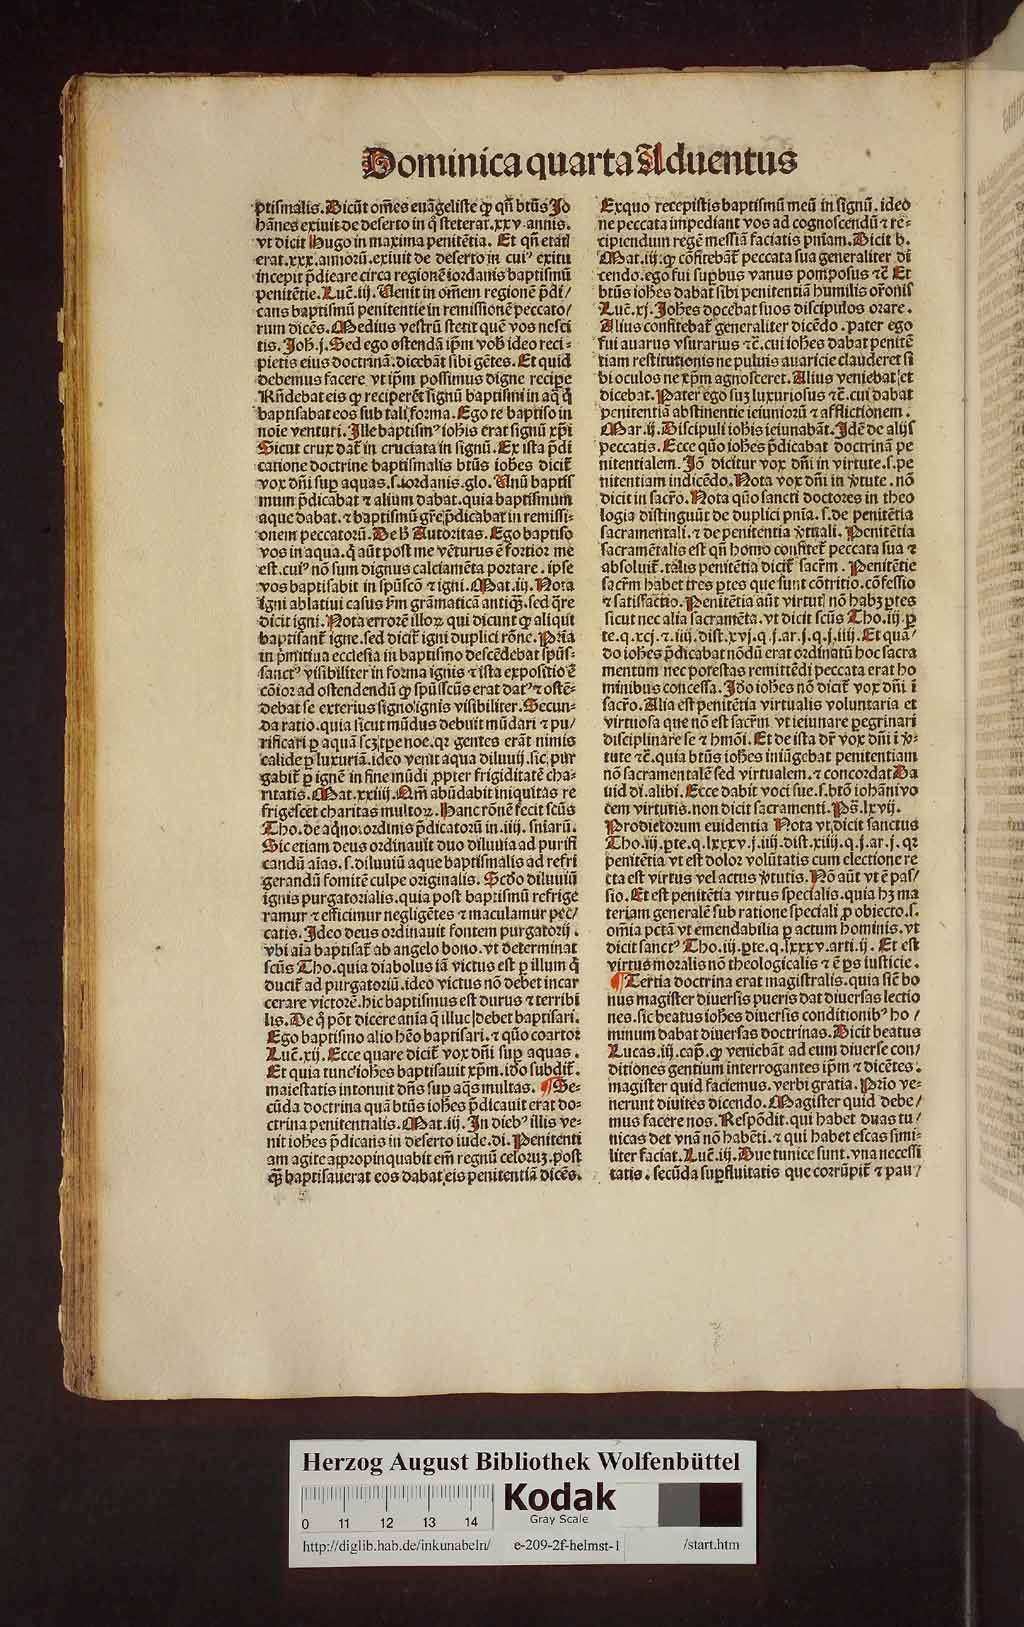 Dominica quarta Aduentus
ptismalis. Dicūt om̄es euāgeliste ꝙ qn̄ btūs Jo
hānes exiuit de deserto in q̄ steterat. xxv. annis.
vt dicit Hugo in maxima penitētia. Et qn̄ etatis
erat. xxx. annorū. exiuit de deserto in cuiꝰ exitu
incepit p̄dicare circa regionē iordanis baptismū
penitētie. Luc̄. iij. Venit in om̄em regionē p̄di/
cans baptismū penitentie in remissionē peccato/
rum dicēs. Medius vestrū stetit quē vos nesci
tis. Joh̄. j. Sed ego ostendā ip̄m vob̄ ideo reci⸗
pietis eius doctrinā. dicebāt sibi gētes. Et quid
debemus facere vt ip̄m possimus digne recipe
Rn̄debat eis ꝙ reciperēt signū baptismi in aq̄ q̄
baptisabat eos sub tali forma. Ego te baptiso in
noīe venturi. Ille baptismꝰ ioh̄is erat signū xp̄i
Sicut crux dat̄ in cruciata in signū. Ex ista p̄di
catione doctrine baptismalis btūs ioh̄es dicit̄
vox dn̄i suꝑ aquas. s. iordanis. glo. Unū baptis
mum p̄dicabat ⁊ alium dabat. quia baptismum
aque dabat. ⁊ baptismū gr̄e p̄dicabat in remissi⸗
onem peccatorū. De h̄ Autoritas. Ego baptiso
vos in aqua. q̄ aūt post me vēturus ē fortior me
est. cuiꝰ nō sum dignus calciamēta portare. ipse
vos baptisabit in sp̄uscō ⁊ igni. Mat. iij. Nota
igni ablatiui casus s̄m grāmaticā antiq̄. sed q̄re
dicit igni. Nota errorē illoꝝ qui dicunt ꝙ aliqui
baptisant̄ igne. sed dicit̄ igni duplici rōne. Pria
in p̄mitiua ecclesia in baptismo descēdebat sp̄us⸗
sanctꝰ visibiliter in forma ignis ⁊ ista expositio ē
cōior ad ostendendū ꝙ sp̄ussc̄us erat datꝰ ⁊ ostē⸗
debat se exterius signo ignis visibiliter. Secun⸗
da ratio. quia sicut mūdus debuit mūdari ⁊ pu/
rificari ꝑ aquā scꝫ tp̄e noe. qꝛ gentes erāt nimis
calide ꝑ luxuriā. ideo venit aqua diluuij. sic pur
gabit̄ ꝑ ignē in fine mūdi ꝓpter frigiditatē cha⸗
ritatis. Mat. xxiiij. Qm̄ abūdabit iniquitas re
frigescet charitas multoꝝ. Hanc rōnē fecit scūs
Tho. de aqno. ordinis p̄dicatorū in. iiij. sniarū.
Sic etiam deus ordinauit duo diluuia ad purifi
candū aīas. s. diluuiū aque baptismalis ad refri
gerandū fomitē culpe originalis. Scdo diluuiū
ignis purgatorialis. quia post baptismū refrige
ramur ⁊ efficimur negligētes ⁊ maculamur pec/
catis. Ideo deus ordinauit fontem purgatorij.
vbi aīa baptisat̄ ab angelo bono. vt determinat
scūs Tho. quia diabolus iā victus est ꝑ illum q̄
ducit̄ ad purgatoriū. ideo victus nō debet incar
cerare victorē. hic baptismus est durus ⁊ terribi
lis. De q̄ pōt dicere anīa q̄ illuc debet baptisari.
Ego baptismo alio hēo baptisari. ⁊ qūo coartor
Luc̄. xij. Ecce quare dicit̄ vox dn̄i suꝑ aquas.
Et quia tunc ioh̄es baptisauit xp̄m. ido subdit̄.
maiestatis intonuit dn̄s suꝑ aq̄s multas. ¶ Se⸗
cūda doctrina quā btūs ioh̄es p̄dicauit erat do⸗
ctrina penitentialis. Mat. iij. In diebꝰ illis ve⸗
nit ioh̄es p̄dicans in deserto iude. di. Penitenti
am agite appropinquabit em̄ regnū celorum. post
qᷓ baptisauerat eos dabat eis penitentiā dicēs.
Exquo recepistis baptismū meū in signū. ideo
ne peccata impediant vos ad cognoscendū ⁊ re⸗
cipiendum regē messiā faciatis pn̄iam. Dicit b.
Mat. iij. ꝙ cōfitebāt̄ peccata sua generaliter di
cendo. ego fui suꝑbus vanus pomposus ⁊c̄ Et
btūs ioh̄es dabat sibi penitentiā humilis or̄onis
Luc̄. xj. Joh̄es docebat suos discipulos orare.
Alius confitebat̄ generaliter dicēdo. pater ego
fui auarus vsurarius ⁊c̄. cui ioh̄es dabat penitē
tiam restitutionis ne puluis auaricie clauderet si
bi oculos ne xp̄m agnosceret. Alius veniebat et
dicebat. Pater ego suꝫ luxuriosus ⁊c̄. cui dabat
penitentiā abstinentie ieiuniorū ⁊ afflictionem.
Mar. ij. Discipuli ioh̄is ieiunabāt. Idē de alijs
peccatis. Ecce qūo ioh̄es p̄dicabat doctrinā pe
nitentialem. Jō dicitur vox dn̄i in virtute. s. pe
nitentiam indicēdo. Nota vox dn̄i in v̄tute. nō
dicit in sacr̄o. Nota qūo sancti doctores in theo
logia distinguūt de duplici pn̄ia. s. de penitētia
sacramentali. ⁊ de penitentia v̄tuali. Penitētia
sacramētalis est qn̄ homo confitet̄ peccata sua ⁊
absoluit̄. talis penitētia dicit̄ sacr̄m. Penitētie
sacr̄m habet tres ꝑtes que sunt cōtritio. cōfessio
⁊ satisfactio. Penitētia aūt virtutꝭ nō habꝫ ꝑtes
sicut nec alia sacramēta. vt dicit scūs Tho. iij. ꝑ
te. q. xcj. ⁊. iiij. dist. xvj. q. j. ar. j. q. j. iiij. Et quā⸗
do ioh̄es p̄dicabat nōdū erat ordinatū hoc sacra
mentum nec potestas remittēdi peccata erat ho
minibus concessa. Ido ioh̄es nō dicit̄ vox dn̄i ī
sacr̄o. Alia est penitētia virtualis voluntaria et
virtuosa que nō est sacr̄m vt ieiunare ꝑegrinari
disciplinare se ⁊ hmōi. Et de ista dr̄ vox dn̄i ī v̄⸗
tute ⁊c̄. quia btūs ioh̄es iniūgebat penitentiam
nō sacramentalē sed virtualem. ⁊ concordat Da
uid di. alibi. Ecce dabit voci sue. s. btō iohāni vo
cem virtutis. non dicit sacramenti. Ps̄. lxvij.
Pro dictorum euidentia Nota vt dicit sanctus
Tho. iij. ꝑte. q. lxxxv. j. iiij. dist. xiiij. q. j. ar. j. qꝛ
penitētia vt est dolor volūtatis cum electione re
cta est virtus vel actus v̄tutis. Nō aūt vt ē pas/
sio. Et est penitētia virtus specialis. quia hꝫ ma
teriam generalē sub ratione speciali ꝓ obiecto. s.
om̄ia pctā vt emendabilia ꝑ actum hominis. vt
dicit sanctꝰ Tho. iij. ꝑte. q. lxxxv. arti. ij. Et est
virtus moralis nō theologicalis ⁊ ē ꝑs iusticie.
¶ Tertia doctrina erat magistralis. quia sic̄ bo
nus magister diuersis pueris dat diuersas lectio
nes. sic beatus ioh̄es diuersis conditionibꝰ ho/
minum dabat diuersas doctrinas. Dicit beatus
Lucas. iij. cap̄. ꝙ veniebāt ad eum diuerse con/
ditiones gentium interrogantes ip̄m ⁊ dicētes.
magister quid faciemus. verbi gratia. Prio ve⸗
nerunt diuites dicendo. Magister quid debe/
mus facere nos. Respōdit. qui habet duas tu/
nicas det vnā nō habēti. ⁊ qui habet escas simi⸗
liter faciat. Luc̄. iij. Due tunice sunt. vna necessi
tatis. secūda suꝑfluitatis que corrūpit̄ ⁊ pau/
Herzog August Bibliothek Wolfenbüttel
0 11 12 13 14
Kodak
Gray Scale
http://diglib.hab.de/inkunabeln/ e-209-2f-helmst-1 /start.htm